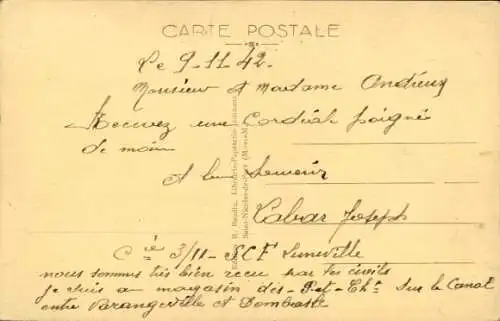 CARTE POSTALE
Le 9-11-42
Monsieur et Madame Andrieux
Recevez une Cordial poigné
de main
A bientôt
Cabar Joseph
Cie 3/11 - SCF Luneville
nous sommes très bien recu par les civils
je suis au magasin des - P-et-Chs Sur le Canal
entre Varangeville et Dombasle
R. Basdin, Librairie-Papeterie
Saint-Nicolas-de-Port (M.-et-M.)